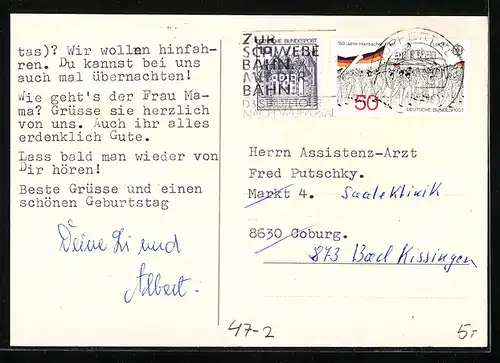 tas)? Wir wollen hinfah-
ren. Du kannst bei uns
auch mal übernachten!
Wie geht's der Frau Ma-
ma? Grüsse sie herzlich
von uns. Auch ihr alles
erdenklich Gute.
Lass bald man wieder von
Dir hören!
Beste Grüsse und einen
schönen Geburtstag
Deine Li und
Albert.
ZUR
SCHWEBE
BAHN
MIT DER
BAHN:
DEUTSCHE BUNDESPOST
150 Jahre Hambacher
50
DEUTSCHE BUNDESPOST
Herrn Assistenz-Arzt
Fred Putschky.
Markt 4. Saaleklinik
8630 Coburg.
873 Bad Kissingen
47-2
5.-